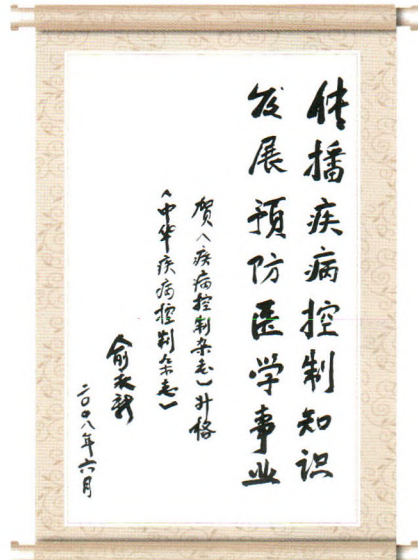 传播疾病控制知识
发展预防医学事业
贺《疾病控制杂志》升格
《中华疾病控制杂志》
俞永新
二〇〇八年六月